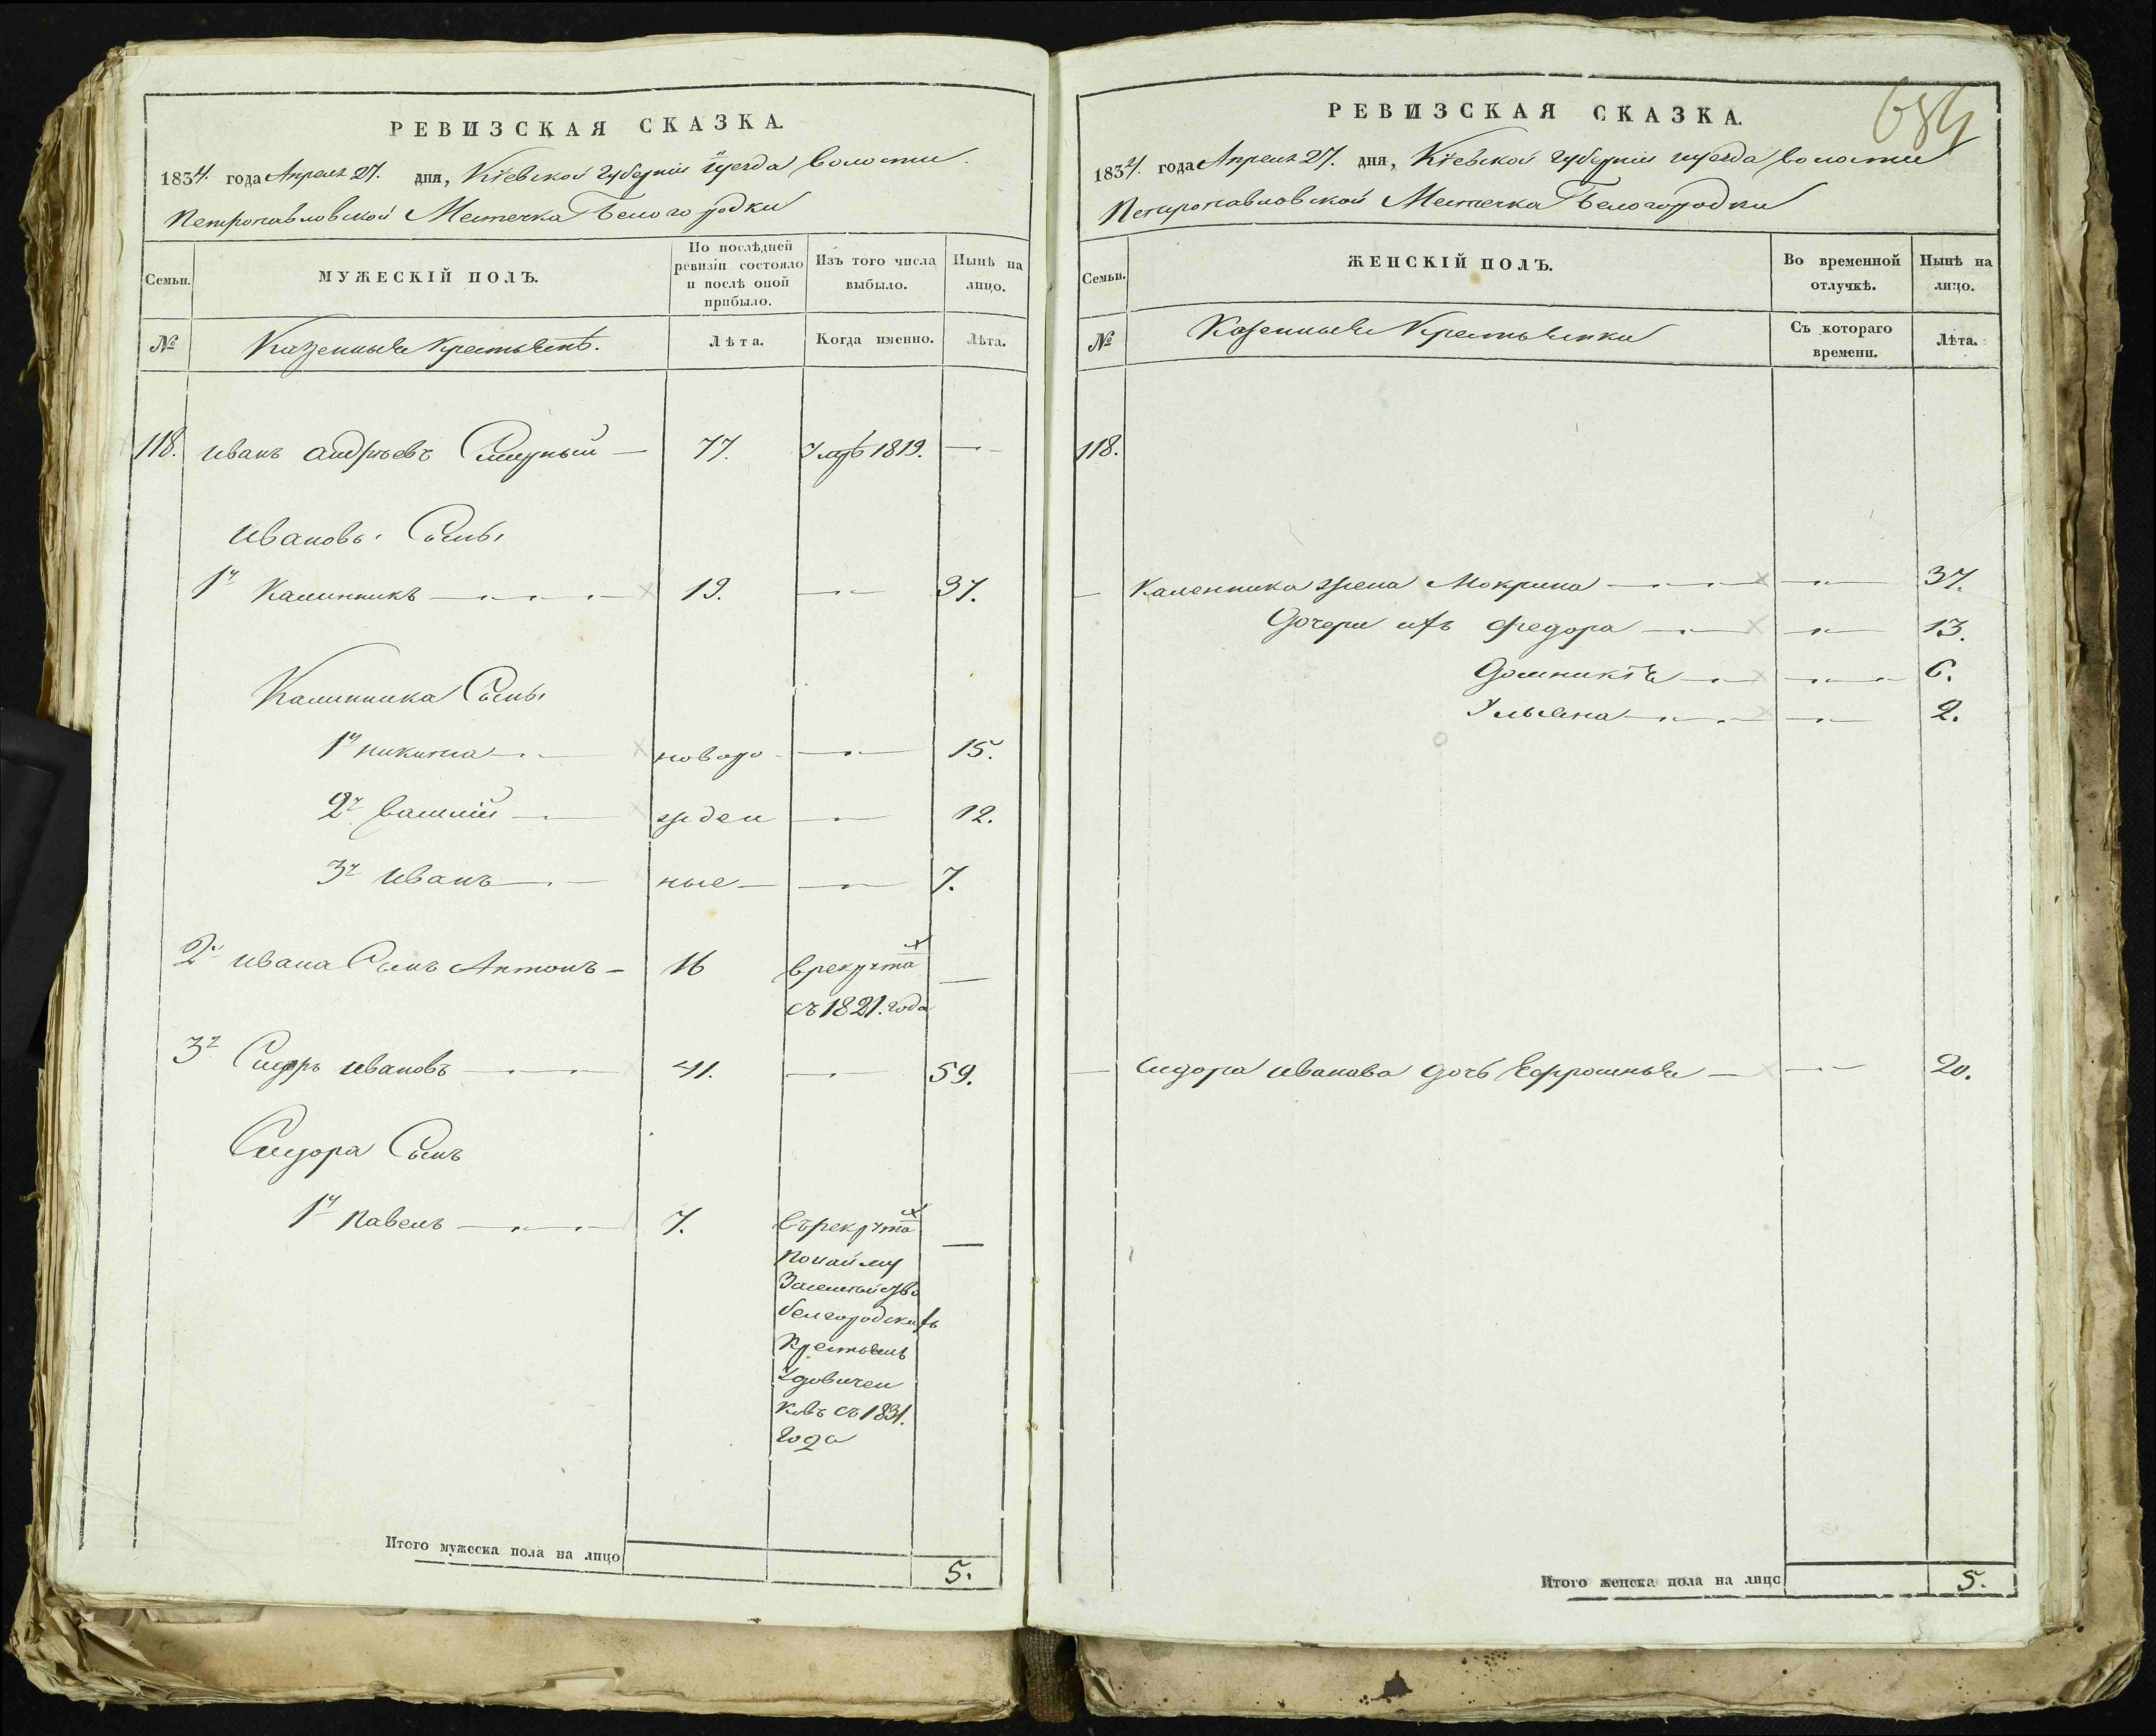 РЕВИЗСКАЯ СКАЗКА.
1834. года Апреля 27. дня, Кіевской губерніи и уезда волости
Петропавловской Местечка Белогородки
Семьи.
МУЖЕСКІЙ ПОЛЪ.
По послѣдней ревизіи состояло и послѣ оной прибыло.
Изъ того числа выбыло.
Нынѣ на лицо.
№
Казенные Крестьяне.
Лѣта.
Когда именно.
Лѣта.
118. иванъ андрѣевъ 77. Умре 1819. —
ивановы Сыны
1й Калинникъ 19. — 37.
Калинника Сыны
1й никита новоро 15.
2й василій жден 12.
3й иванъ ные 7.
2й ивана Сынъ Антонъ 16 врекрута х —
съ 1821. года
3й Сидоръ ивановъ 41. — 59.
Сидора Сынъ
1й павелъ 7. въ рекрута х —
понайму
белгородскихъ
Крестьянъ
Удовичен
ковъ съ 1831.
года
Итого мужеска пола на лицо
5.
684
РЕВИЗСКАЯ СКАЗКА.
1834. года Апреля 27. дня, Кіевской губерніи и уезда волости
Петропавловской Местечка Белогородки
Семьи.
ЖЕНСКІЙ ПОЛЪ.
Во временной отлучкѣ.
Нынѣ на лицо.
№
Казенные Крестьянки
Съ котораго времени.
Лѣта.
118.
— Каленника жена Мокрина — 37.
Дочери ихъ Федора — 13.
Домникія — 6.
Ульяна — 2.
— сидора иванова дочь Ефросинья — 20.
Итого женска пола на лицо
5.